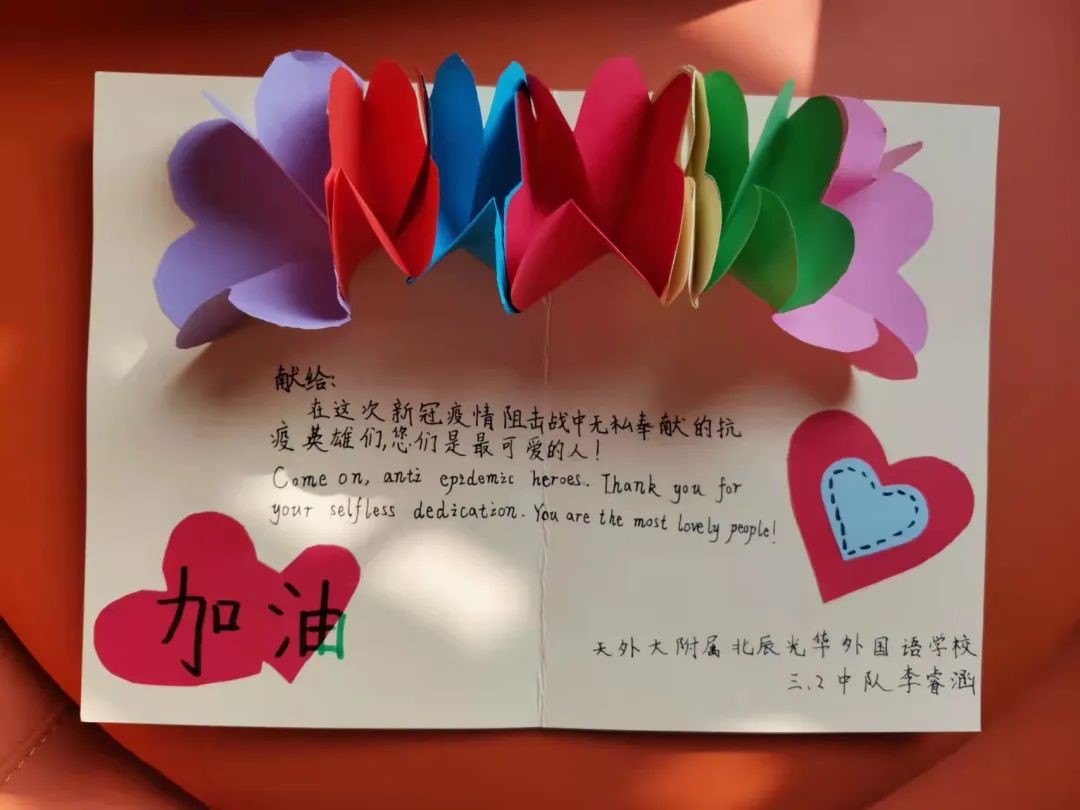 献给:
在这次新冠疫情阻击战中无私奉献的抗
疫英雄们,您们是最可爱的人!
Come on, anti epidemic heroes. Thank you for
your selfless dedication. You are the most lovely people!
加油
天外大附属北辰光华外国语学校
三.2中队李睿涵